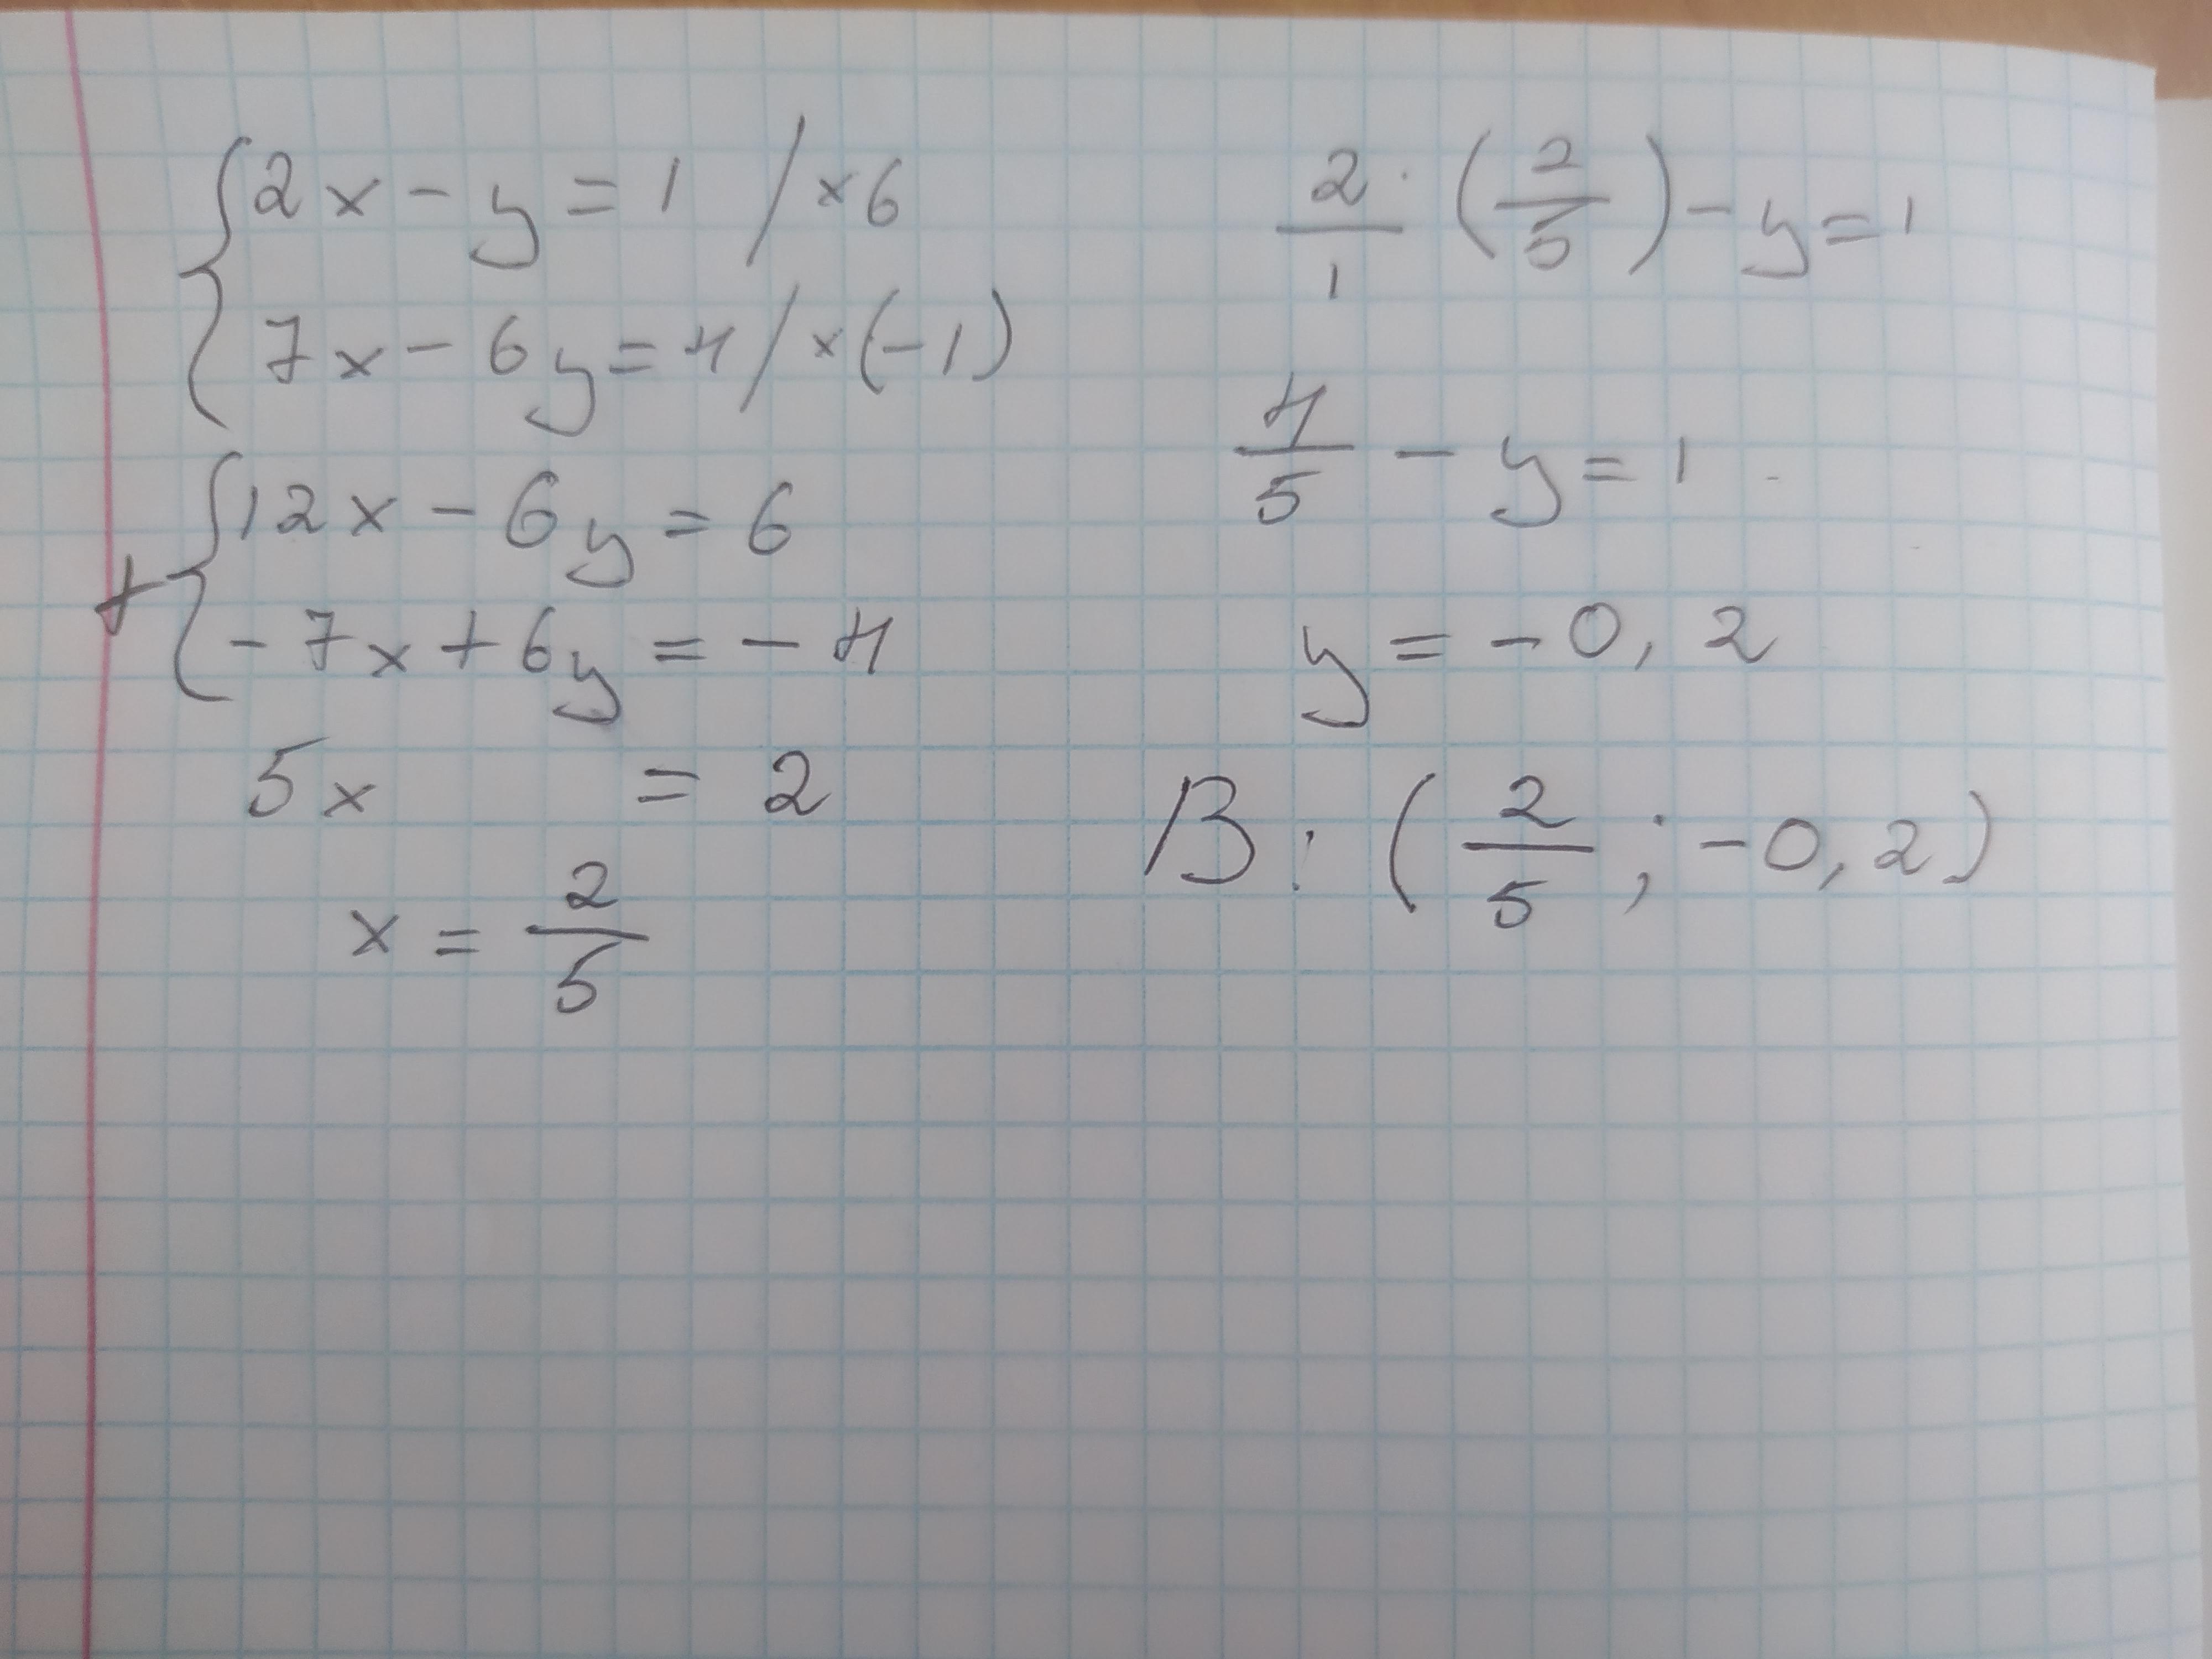 {2x - y = 1 / ×6
{7x - 6y = 4 / ×(-1)
+ {12x - 6y = 6
{-7x + 6y = -4
5x = 2
x = 2/5
2/1 · (2/5) - y = 1
4/5 - y = 1
y = -0,2
В: (2/5 ; -0,2)